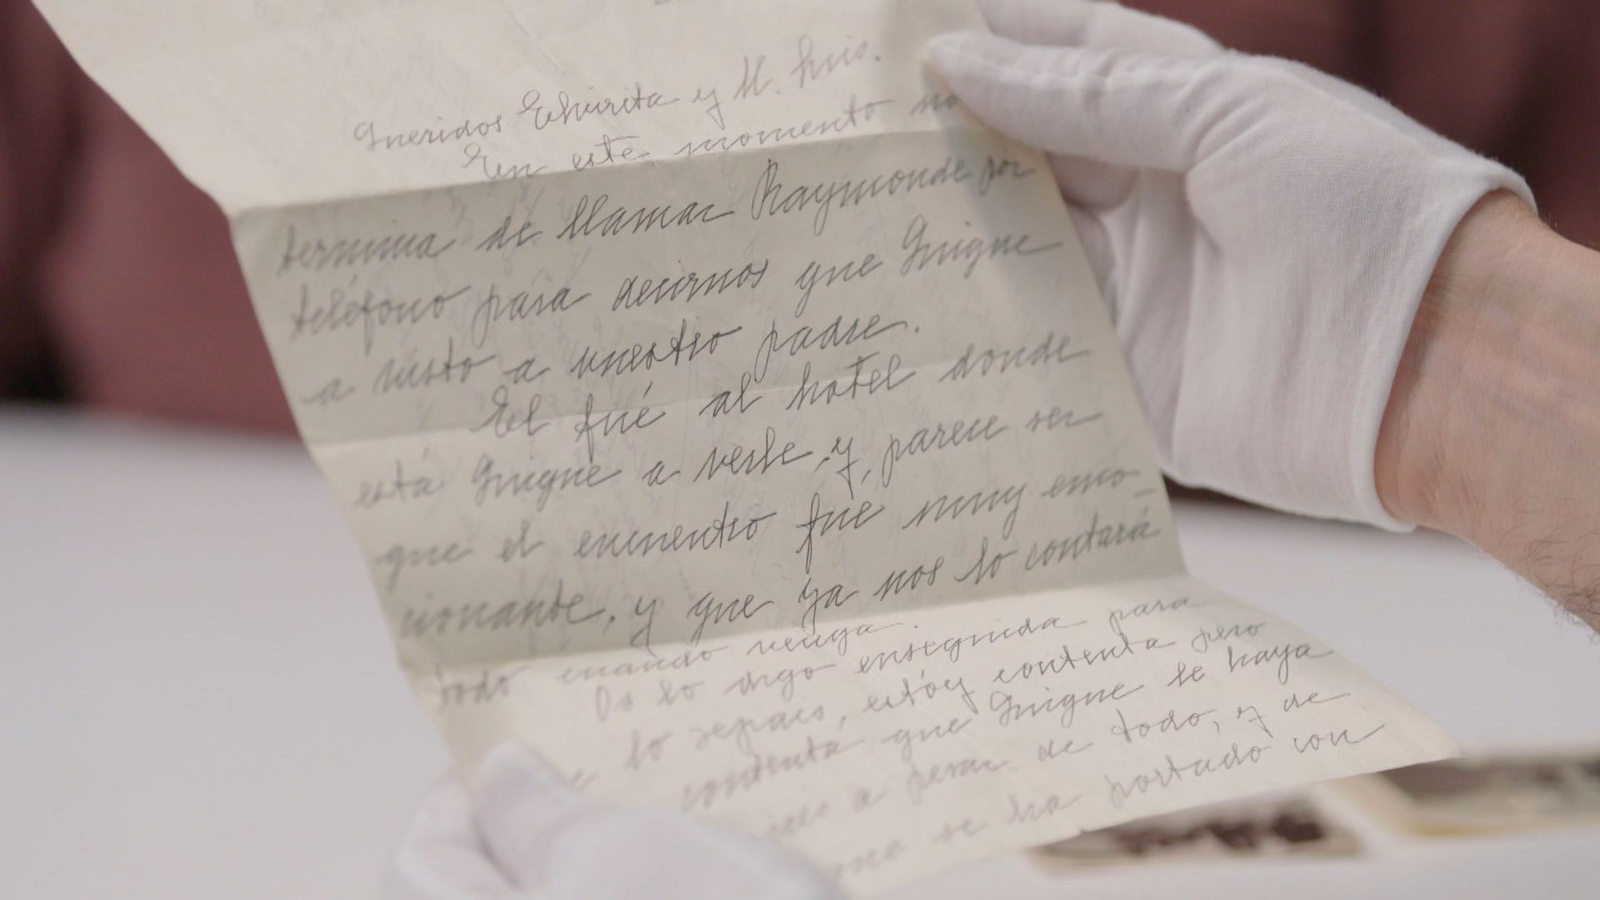 Queridos Echurita y M. Luis.
En este momento no
termina de llamar Raymonde por
teléfono para decirnos que Guigue
a visto a nuestro padre.
El fué al hotel donde
está Guigue a verle, y, parece ser
que el encuentro fué muy emo-
cionante, y que ya nos lo contará
todo cuando venga.
Os lo digo enseguida para
lo sepais, estóy contenta pero
contenta que Guigue se haya
a pesar de todo, y de
se ha portado con